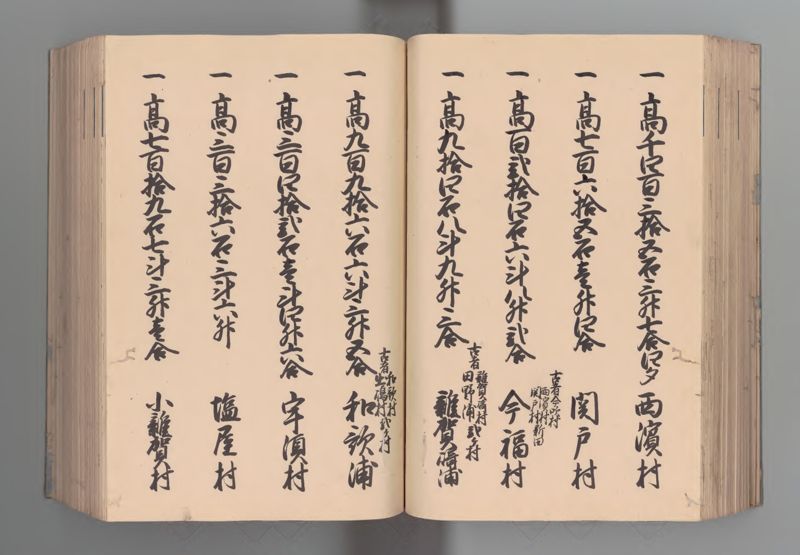 一 高千四百三拾五石三升七合四夕 西濱村
一 高七百六拾五石壱升四合 関戸村
古者今福村
西濱村
関戸村新田
一 高百弐拾四石六斗八升弐合 今福村
古者雜賀崎村
田野浦弐ケ村
一 高九拾四石八斗九升三合 雜賀崎浦
古者和歌村
出嶋村弐ケ村
一 高九百九拾六石六斗三升五合 和歌浦
一 高三百四拾弐石壱斗四升六合 宇須村
一 高三百三拾六石三斗六升 塩屋村
一 高七百拾九石七斗三升壱合 小雜賀村